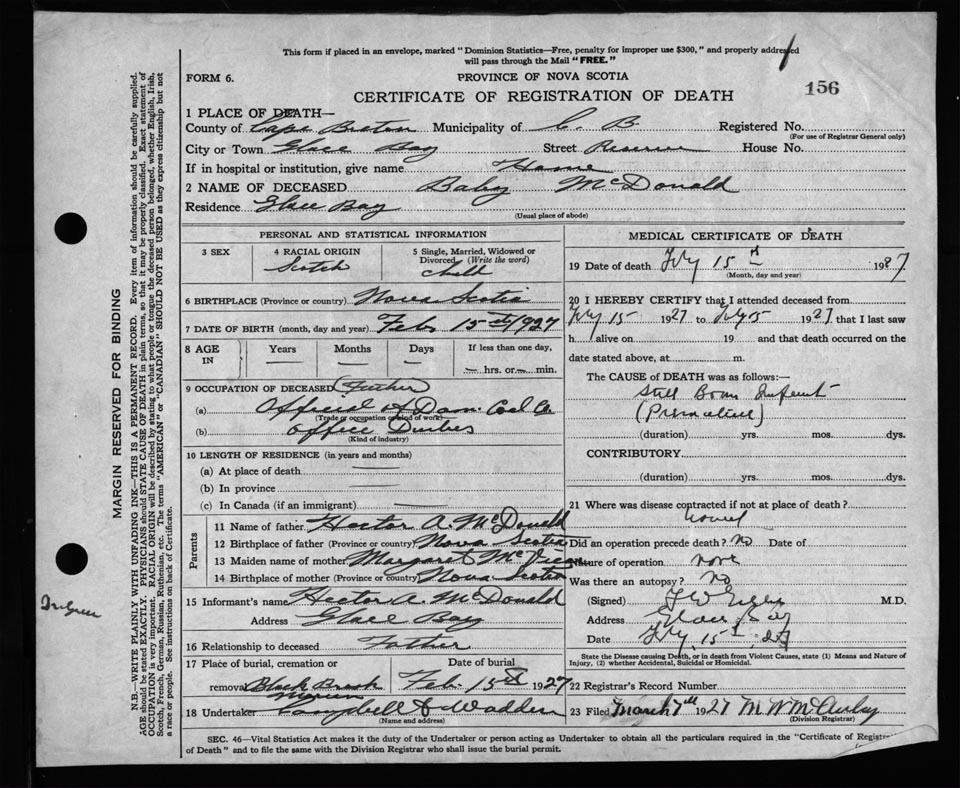 This form if placed in an envelope, marked "Dominion Statistics—Free, penalty for improper use $300," and properly addressed
will pass through the Mail "FREE."
FORM 6.
PROVINCE OF NOVA SCOTIA
156
CERTIFICATE OF REGISTRATION OF DEATH
1 PLACE OF DEATH—
County of Cape Breton Municipality of C. B. Registered No.
(For use of Registrar General only)
City or Town Glace Bay Street Reserve House No.
If in hospital or institution, give name Home
2 NAME OF DECEASED Baby McDonald
Residence Glace Bay
(Usual place of abode)
PERSONAL AND STATISTICAL INFORMATION
3 SEX 4 RACIAL ORIGIN 5 Single, Married, Widowed or
Divorced (Write the word)
Scotch Child
6 BIRTHPLACE (Province or country) Nova Scotia
7 DATE OF BIRTH (month, day and year) Feb 15th 1927
8 AGE IN Years Months Days If less than one day,
— — — — hrs. or — min.
9 OCCUPATION OF DECEASED (Father)
(a) Official of Dom. Coal Co.
(Trade or occupation or kind of work)
(b) Office Duties
(Kind of industry)
10 LENGTH OF RESIDENCE (in years and months)
(a) At place of death
(b) In province
(c) In Canada (if an immigrant)
Parents
11 Name of father Hector A. McDonald
12 Birthplace of father (Province or country) Nova Scotia
13 Maiden name of mother Margaret
14 Birthplace of mother (Province or country) Nova Scotia
15 Informant's name Hector A. McDonald
Address Glace Bay
16 Relationship to deceased Father
17 Place of burial, cremation or Date of burial
removal Black Brook Feb. 15th 1927
18 Undertaker Campbell & Wadden
(Name and address)
MEDICAL CERTIFICATE OF DEATH
19 Date of death Fby 15th 1927
(Month, day and year)
20 I HEREBY CERTIFY that I attended deceased from
Fby 15 1927 to Fby 15 1927 that I last saw
h alive on 19 and that death occurred on the
date stated above, at m.
The CAUSE of DEATH was as follows:—
Still Born Infant
(Premature)
(duration) yrs. mos. dys.
CONTRIBUTORY
(duration) yrs. mos. dys.
21 Where was disease contracted if not at place of death?
Did an operation precede death? No Date of
Nature of operation none
Was there an autopsy? No
(Signed) M.D.
Address Glace Bay
Date Fby 15th 27
State the Disease causing Death, or in death from Violent Causes, state (1) Means and Nature of
Injury, (2) whether Accidental, Suicidal or Homicidal.
22 Registrar's Record Number
23 Filed March 7th 1927
(Division Registrar)
SEC. 46—Vital Statistics Act makes it the duty of the Undertaker or person acting as Undertaker to obtain all the particulars required in the "Certificate of
of Death" and to file the same with the Division Registrar who shall issue the burial permit.
MARGIN RESERVED FOR BINDING
N.B.—WRITE PLAINLY WITH UNFADING INK—THIS IS A PERMANENT RECORD. Every item of information should be carefully supplied.
AGE should be stated EXACTLY. PHYSICIANS should STATE CAUSE OF DEATH in plain terms, so that it may be properly classified. Exact statement of
OCCUPATION is very important. RACIAL ORIGIN will be described by stating to what people or tongue the deceased person belonged, whether English, Irish,
Scotch, French, German, Russian, Ruthenian, etc. The terms "AMERICAN" or "CANADIAN" SHOULD NOT BE USED as they express citizenship but not
a race or people. See instructions on back of Certificate.